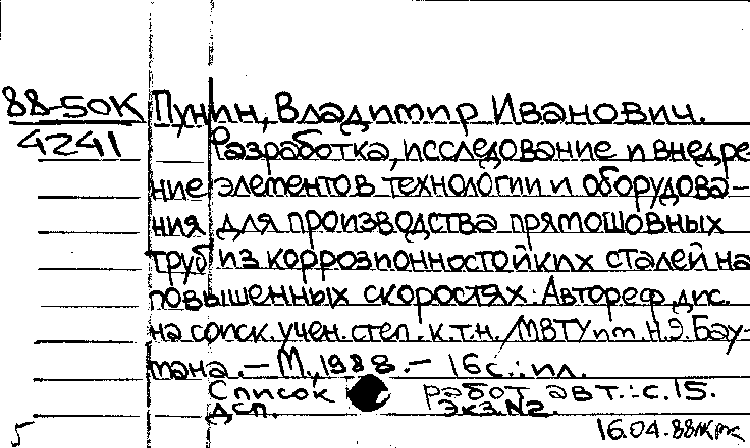 88-50К Пунин, Владимир Иванович.
4241 Разработка, исследование и внедре
ние элементов технологии и оборудова-
ния для производства прямошовных
труб из коррозионностойких сталей на
повышенных скоростях: Автореф. дис.
на соиск. учен. степ. к.т.н. / МВТУ им. Н.Э. Бау-
мана. — М., 1988. — 16 с.: ил.
Список работ авт.: с. 15.
ДСП. Экз. №2.
16.04.88